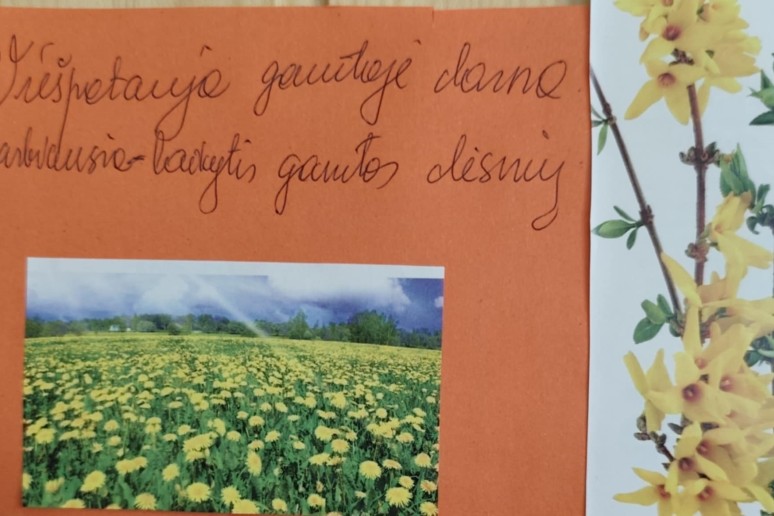 Viešpatauja gamtoje darna
svarbiausia - laikytis gamtos dėsnių